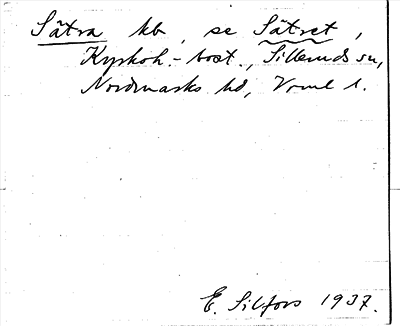 Sätra kb, se Sätret,
Kyrkoh.-bost., Sillerud sn,
Nordmarks hd, Vrml l.
E. Silfors 1937.